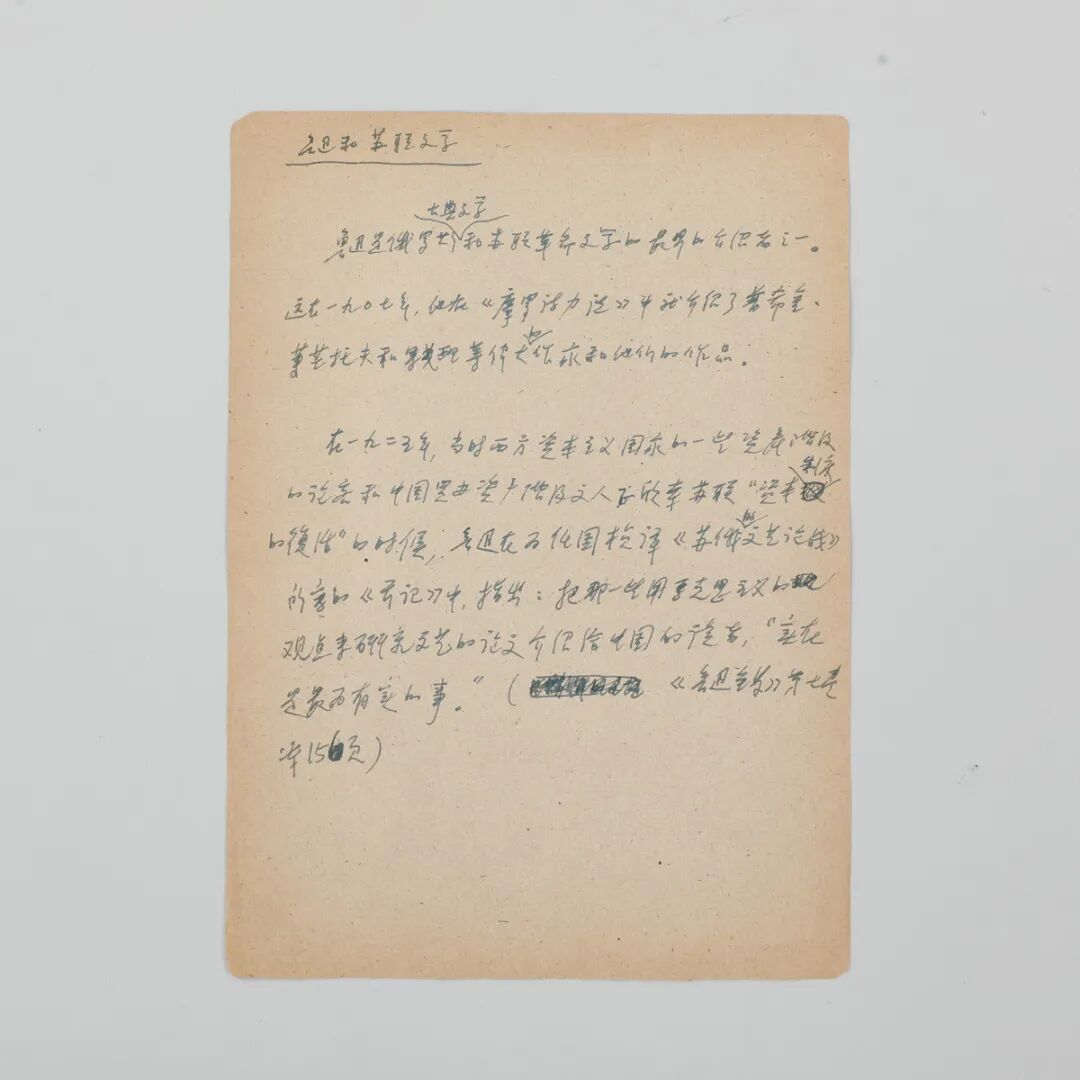 鲁迅和苏联文学
古典文学
鲁迅是俄罗斯和苏联革命文学的最早的介绍者之一。
远在一九〇七年,他在《摩罗诗力说》中就介绍了普希金、
莱芒托夫和果戈理等伟大的作家和他们的作品。
在一九二五年,当时西方资本主义国家的一些资产阶级
的论客和中国买办资产阶级文人正欣幸苏联“资本制度
的复活”的时候,鲁迅在为任国桢译《苏俄的文艺论战》
所写的《前记》中,指出:把那一些用马克思主义的
观点来研究文艺的论文介绍给中国的读者,“实在
是最为有益的事。”(《鲁迅全集》第七卷
第156页)